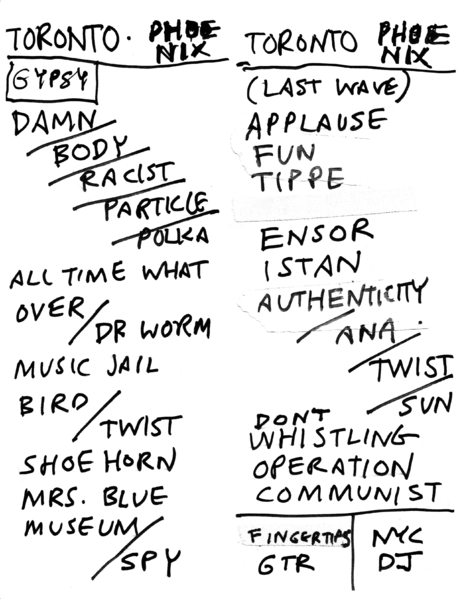 TORONTO · PHOE
NIX
GYPSY
DAMN
BODY
RACIST
PARTICLE
POLKA
ALL TIME WHAT
OVER
DR WORM
MUSIC JAIL
BIRD
TWIST
SHOE HORN
MRS. BLUE
MUSEUM
SPY
TORONTO PHOE
NIX
(LAST WAVE)
APPLAUSE
FUN
TIPPE
ENSOR
ISTAN
AUTHENTICITY
ANA
TWIST
SUN
DONT
WHISTLING
OPERATION
COMMUNIST
FINGERTIPS
GTR
NYC
DJ